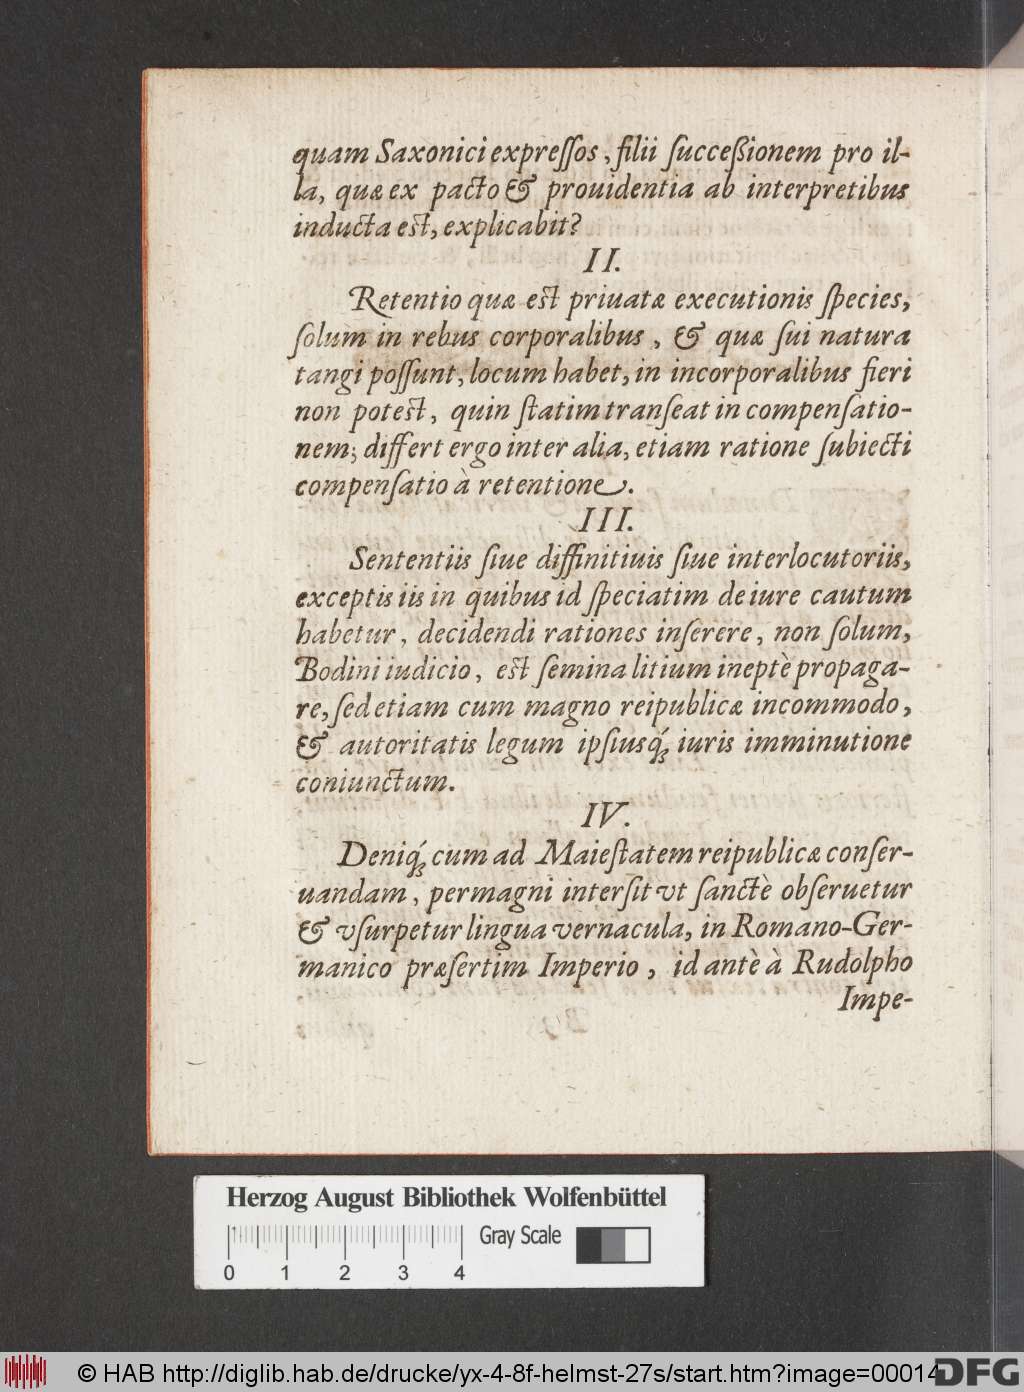 quam Saxonici expreſſos, filii ſucceßionem pro il-
la, quæ ex pacto & prouidentia ab interpretibus
inducta est, explicabit?
II.
Retentio quæ est priuatæ executionis ſpecies,
ſolum in rebus corporalibus, & quæ ſui natura
tangi poſſunt, locum habet, in incorporalibus fieri
non potest, quin ſtatim tranſeat in compenſatio-
nem; differt ergo inter alia, etiam ratione ſubiecti
compenſatio à retentione.
III.
Sententiis ſiue diffinitiuis ſiue interlocutoriis,
exceptis iis in quibus id ſpeciatim de iure cautum
habetur, decidendi rationes inſerere, non ſolum,
Bodini iudicio, est ſemina litium ineptè propaga-
re, ſed etiam cum magno reipublicæ incommodo,
& autoritatis legum ipſiusq́; iuris imminutione
coniunctum.
IV.
Deniq́; cum ad Maieſtatem reipublicæ conſer-
uandam, permagni interſit vt ſanctè obſeruetur
& vſurpetur lingua vernacula, in Romano-Ger-
manico præſertim Imperio, id antè à Rudolpho
Impe-
Herzog August Bibliothek Wolfenbüttel
Gray Scale
0 1 2 3 4
© HAB http://diglib.hab.de/drucke/yx-4-8f-helmst-27s/start.htm?image=00014
DFG